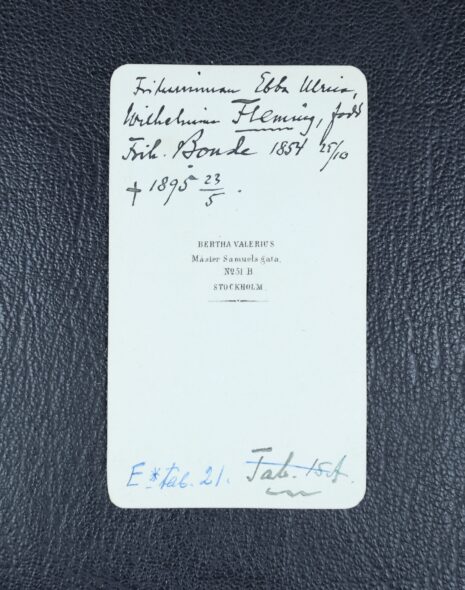 Friherrinnan Ebba Ulrica,
Wilhelmina Fleming, född
Frih. Bonde 1854 25/10
† 1895 23/5.
BERTHA VALERIUS
Mäster Samuels gata.
No 51 B
STOCKHOLM
E * tab. 21. Tab. 15A.